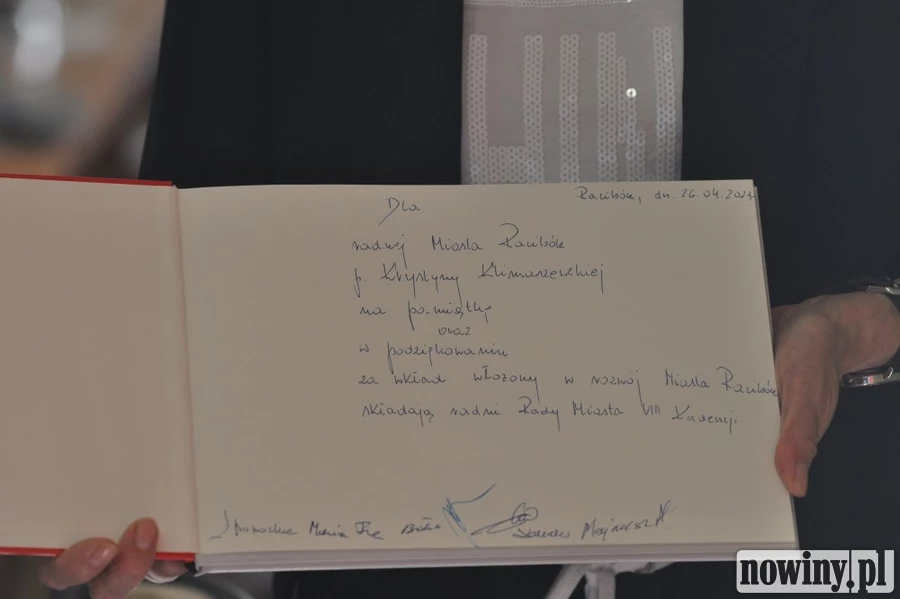 Racibórz, dn. 26.04.2023r.
Dla
radnej Miasta Racibórz
p. Krystyny Klimaszewskiej
na pamiątkę
oraz
w podziękowaniu
za wkład włożony w rozwój Miasta Racibórz
składają radni Rady Miasta VIII kadencji
nowiny.pl